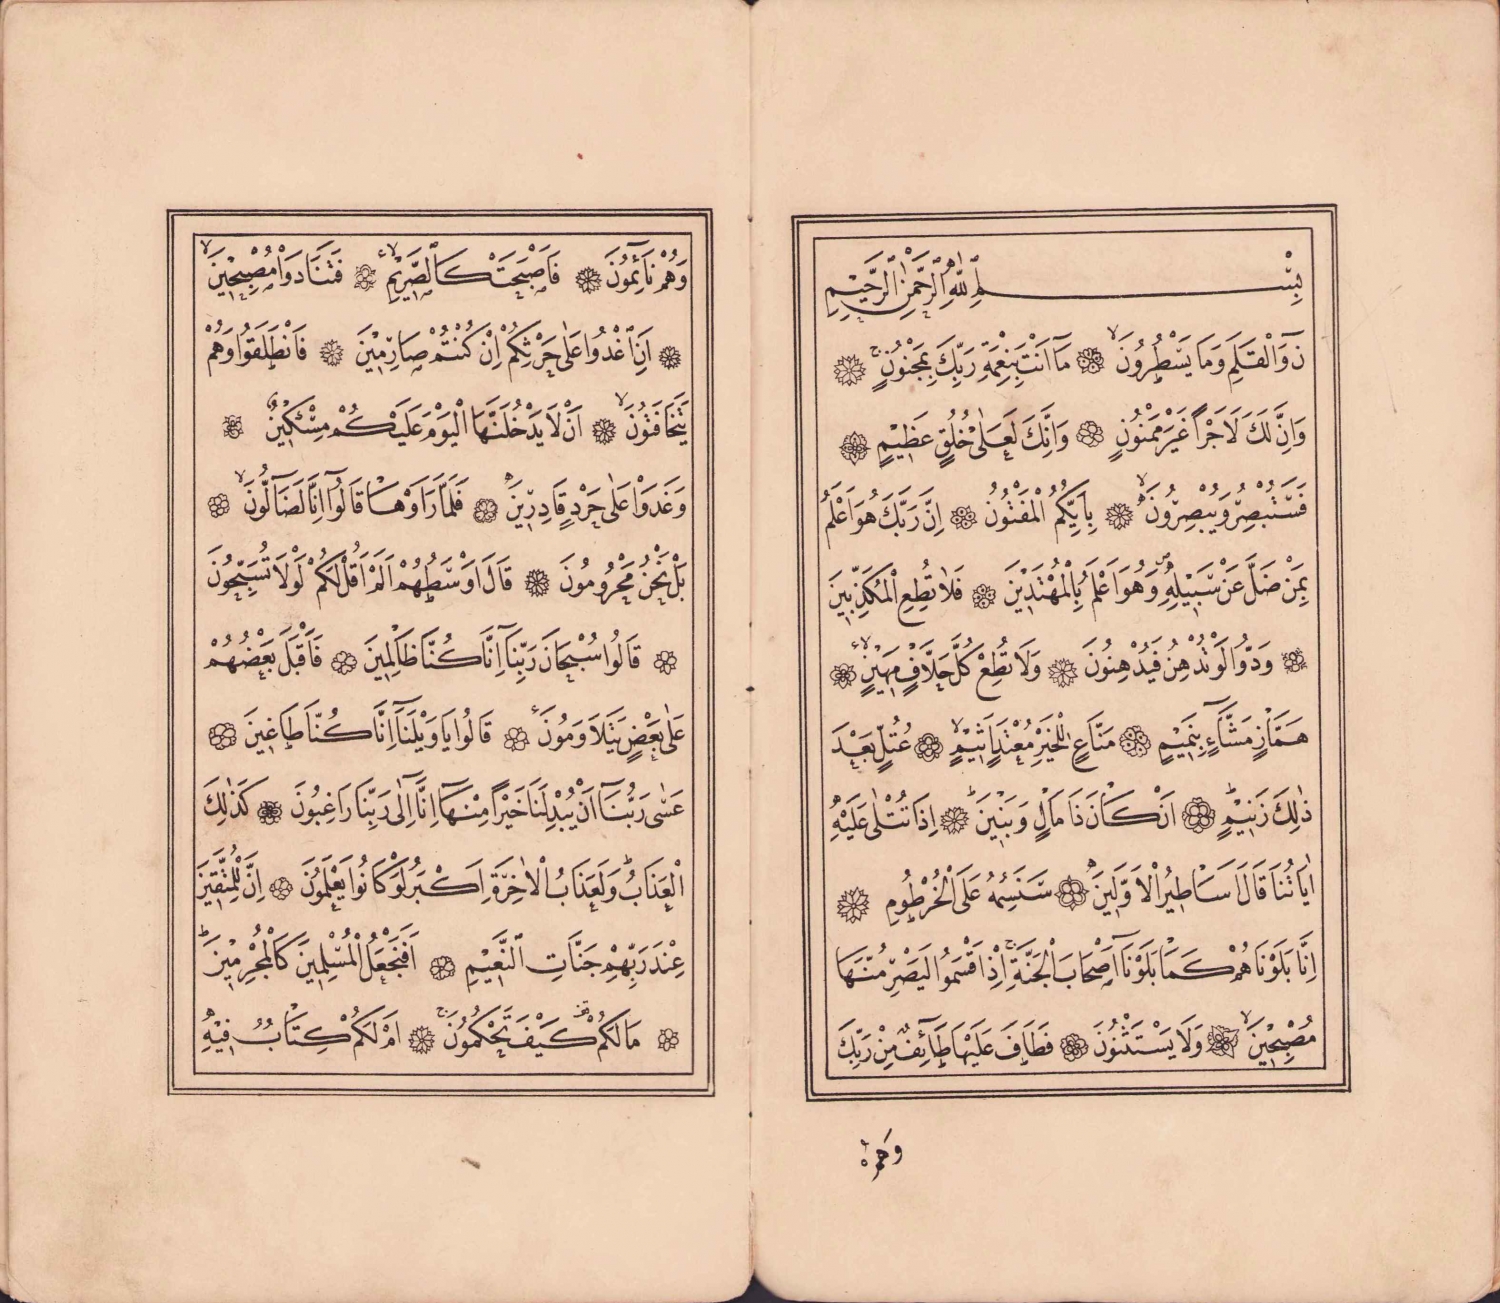 بِسْمِ اللّٰهِ الرَّحْمٰنِ الرَّحِيمِ
نٓ وَالْقَلَمِ وَمَا يَسْطُرُونَ ۙ مَٓا اَنْتَ بِنِعْمَةِ رَبِّكَ بِمَجْنُونٍ ۚ
وَاِنَّ لَكَ لَاَجْراً غَيْرَ مَمْنُونٍ وَاِنَّكَ لَعَلٰى خُلُقٍ عَظِيمٍ
فَسَتُبْصِرُ وَيُبْصِرُونَ ۙ بِاَيِّكُمُ الْمَفْتُونُ اِنَّ رَبَّكَ هُوَ اَعْلَمُ
بِمَنْ ضَلَّ عَنْ سَبِيلِهِ وَهُوَ اَعْلَمُ بِالْمُهْتَدِينَ فَلَا تُطِعِ الْمُكَذِّبِينَ
وَدُّوا لَوْ تُدْهِنُ فَيُدْهِنُونَ وَلَا تُطِعْ كُلَّ حَلَّافٍ مَهِينٍ ۙ
هَمَّازٍ مَشَّٓاءٍ بِنَمِيمٍ مَنَّاعٍ لِلْخَيْرِ مُعْتَدٍ اَثِيمٍ ۙ عُتُلٍّ بَعْدَ
ذٰلِكَ زَنِيمٍ ۜ اَنْ كَانَ ذَا مَالٍ وَبَنِينَ ۜ اِذَا تُتْلٰى عَلَيْهِ
اٰيَاتُنَا قَالَ اَسَاطِيرُ الْاَوَّلِينَ سَنَسِمُهُ عَلَى الْخُرْطُومِ
اِنَّا بَلَوْنَاهُمْ كَمَا بَلَوْنَٓا اَصْحَابَ الْجَنَّةِ ۚ اِذْ اَقْسَمُوا لَيَصْرِمُنَّهَا
مُصْبِحِينَ ۙ وَلَا يَسْتَثْنُونَ فَطَافَ عَلَيْهَا طَٓائِفٌ مِنْ رَبِّكَ
وَهُمْ
وَهُمْ نَٓائِمُونَ فَاَصْبَحَتْ كَالصَّرِيمِ ۙ فَتَنَادَوْا مُصْبِحِينَ ۙ
اَنِ اغْدُوا عَلٰى حَرْثِكُمْ اِنْ كُنْتُمْ صَارِمِينَ فَانْطَلَقُوا وَهُمْ
يَتَخَافَتُونَ ۙ اَنْ لَا يَدْخُلَنَّهَا الْيَوْمَ عَلَيْكُمْ مِسْكِينٌ
وَغَدَوْا عَلٰى حَرْدٍ قَادِرِينَ فَلَمَّا رَاَوْهَا قَالُٓوا اِنَّا لَضَٓالُّونَ ۙ
بَلْ نَحْنُ مَحْرُومُونَ قَالَ اَوْسَطُهُمْ اَلَمْ اَقُلْ لَكُمْ لَوْلَا تُسَبِّحُونَ
قَالُوا سُبْحَانَ رَبِّنَٓا اِنَّا كُنَّا ظَالِمِينَ فَاَقْبَلَ بَعْضُهُمْ
عَلٰى بَعْضٍ يَتَلَاوَمُونَ قَالُوا يَا وَيْلَنَٓا اِنَّا كُنَّا طَاغِينَ
عَسٰى رَبُّنَٓا اَنْ يُبْدِلَنَا خَيْراً مِنْهَٓا اِنَّٓا اِلٰى رَبِّنَا رَاغِبُونَ كَذٰلِكَ
الْعَذَابُ ۜ وَلَعَذَابُ الْاٰخِرَةِ اَكْبَرُ لَوْ كَانُوا يَعْلَمُونَ اِنَّ لِلْمُتَّقِينَ
عِنْدَ رَبِّهِمْ جَنَّاتِ النَّعِيمِ اَفَنَجْعَلُ الْمُسْلِمِينَ كَالْمُجْرِمِينَ ۜ
مَا لَكُمْ كَيْفَ تَحْكُمُونَ ۚ اَمْ لَكُمْ كِتَابٌ فِيهِ